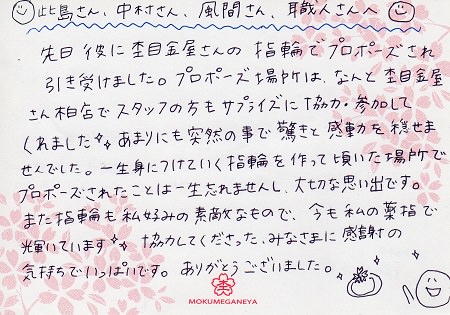 此島さん、中村さん、風間さん、職人さんへ
先日 彼に杢目金屋さんの 指輪でプロポーズされ
引き受けました。プロポーズ場所は、なんと 杢目金屋
さん柏店で スタッフの方も サプライズに 協力・参加して
くれました あまりにも突然の事で 驚きと 感動を 隠せま
せんでした。一生身につけていく指輪を 作って頂いた場所で
プロポーズされたことは一生忘れませんし、大切な思い出です。
また指輪も 私好みの素敵なもので、今も 私の薬指で
輝いています 協力してくださった、みなさまに 感謝の
気持ちで いっぱいです。 ありがとうございました。
MOKUMEGANEYA